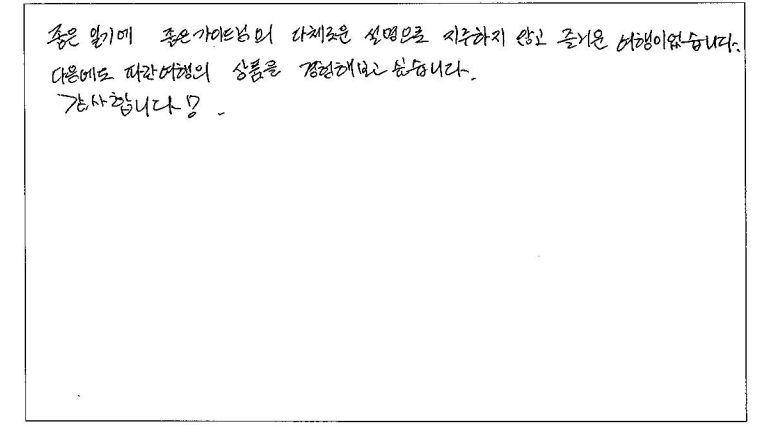 좋은 일기에 좋은 가이드님의 다채로운 설명으로 지루하지 않고 즐거운 여행이었습니다.
다음에도 파란여행의 상품을 경험해보고 싶습니다.
감사합니다!.